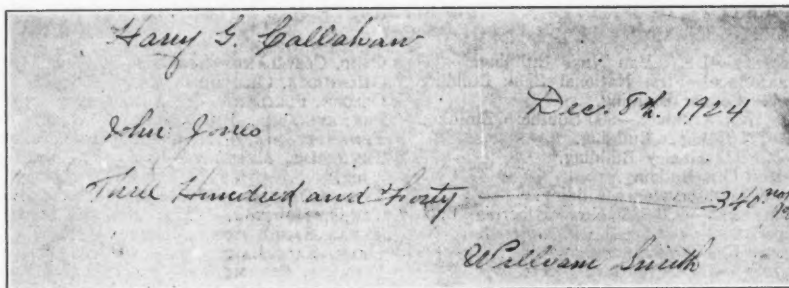 Harry G. Callahan
Dec. 8th. 1924
John Jones
Three Hundred and Forty 340
William Smith